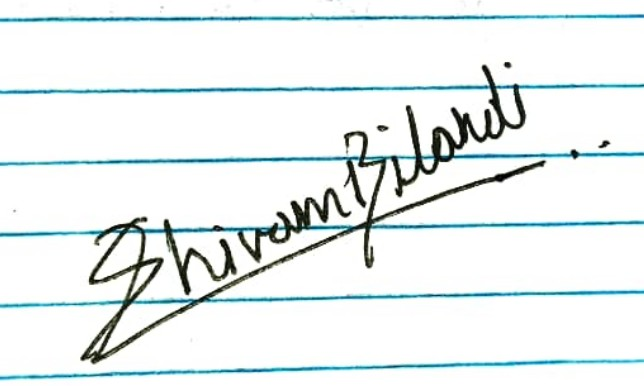 Shivam Bilandi